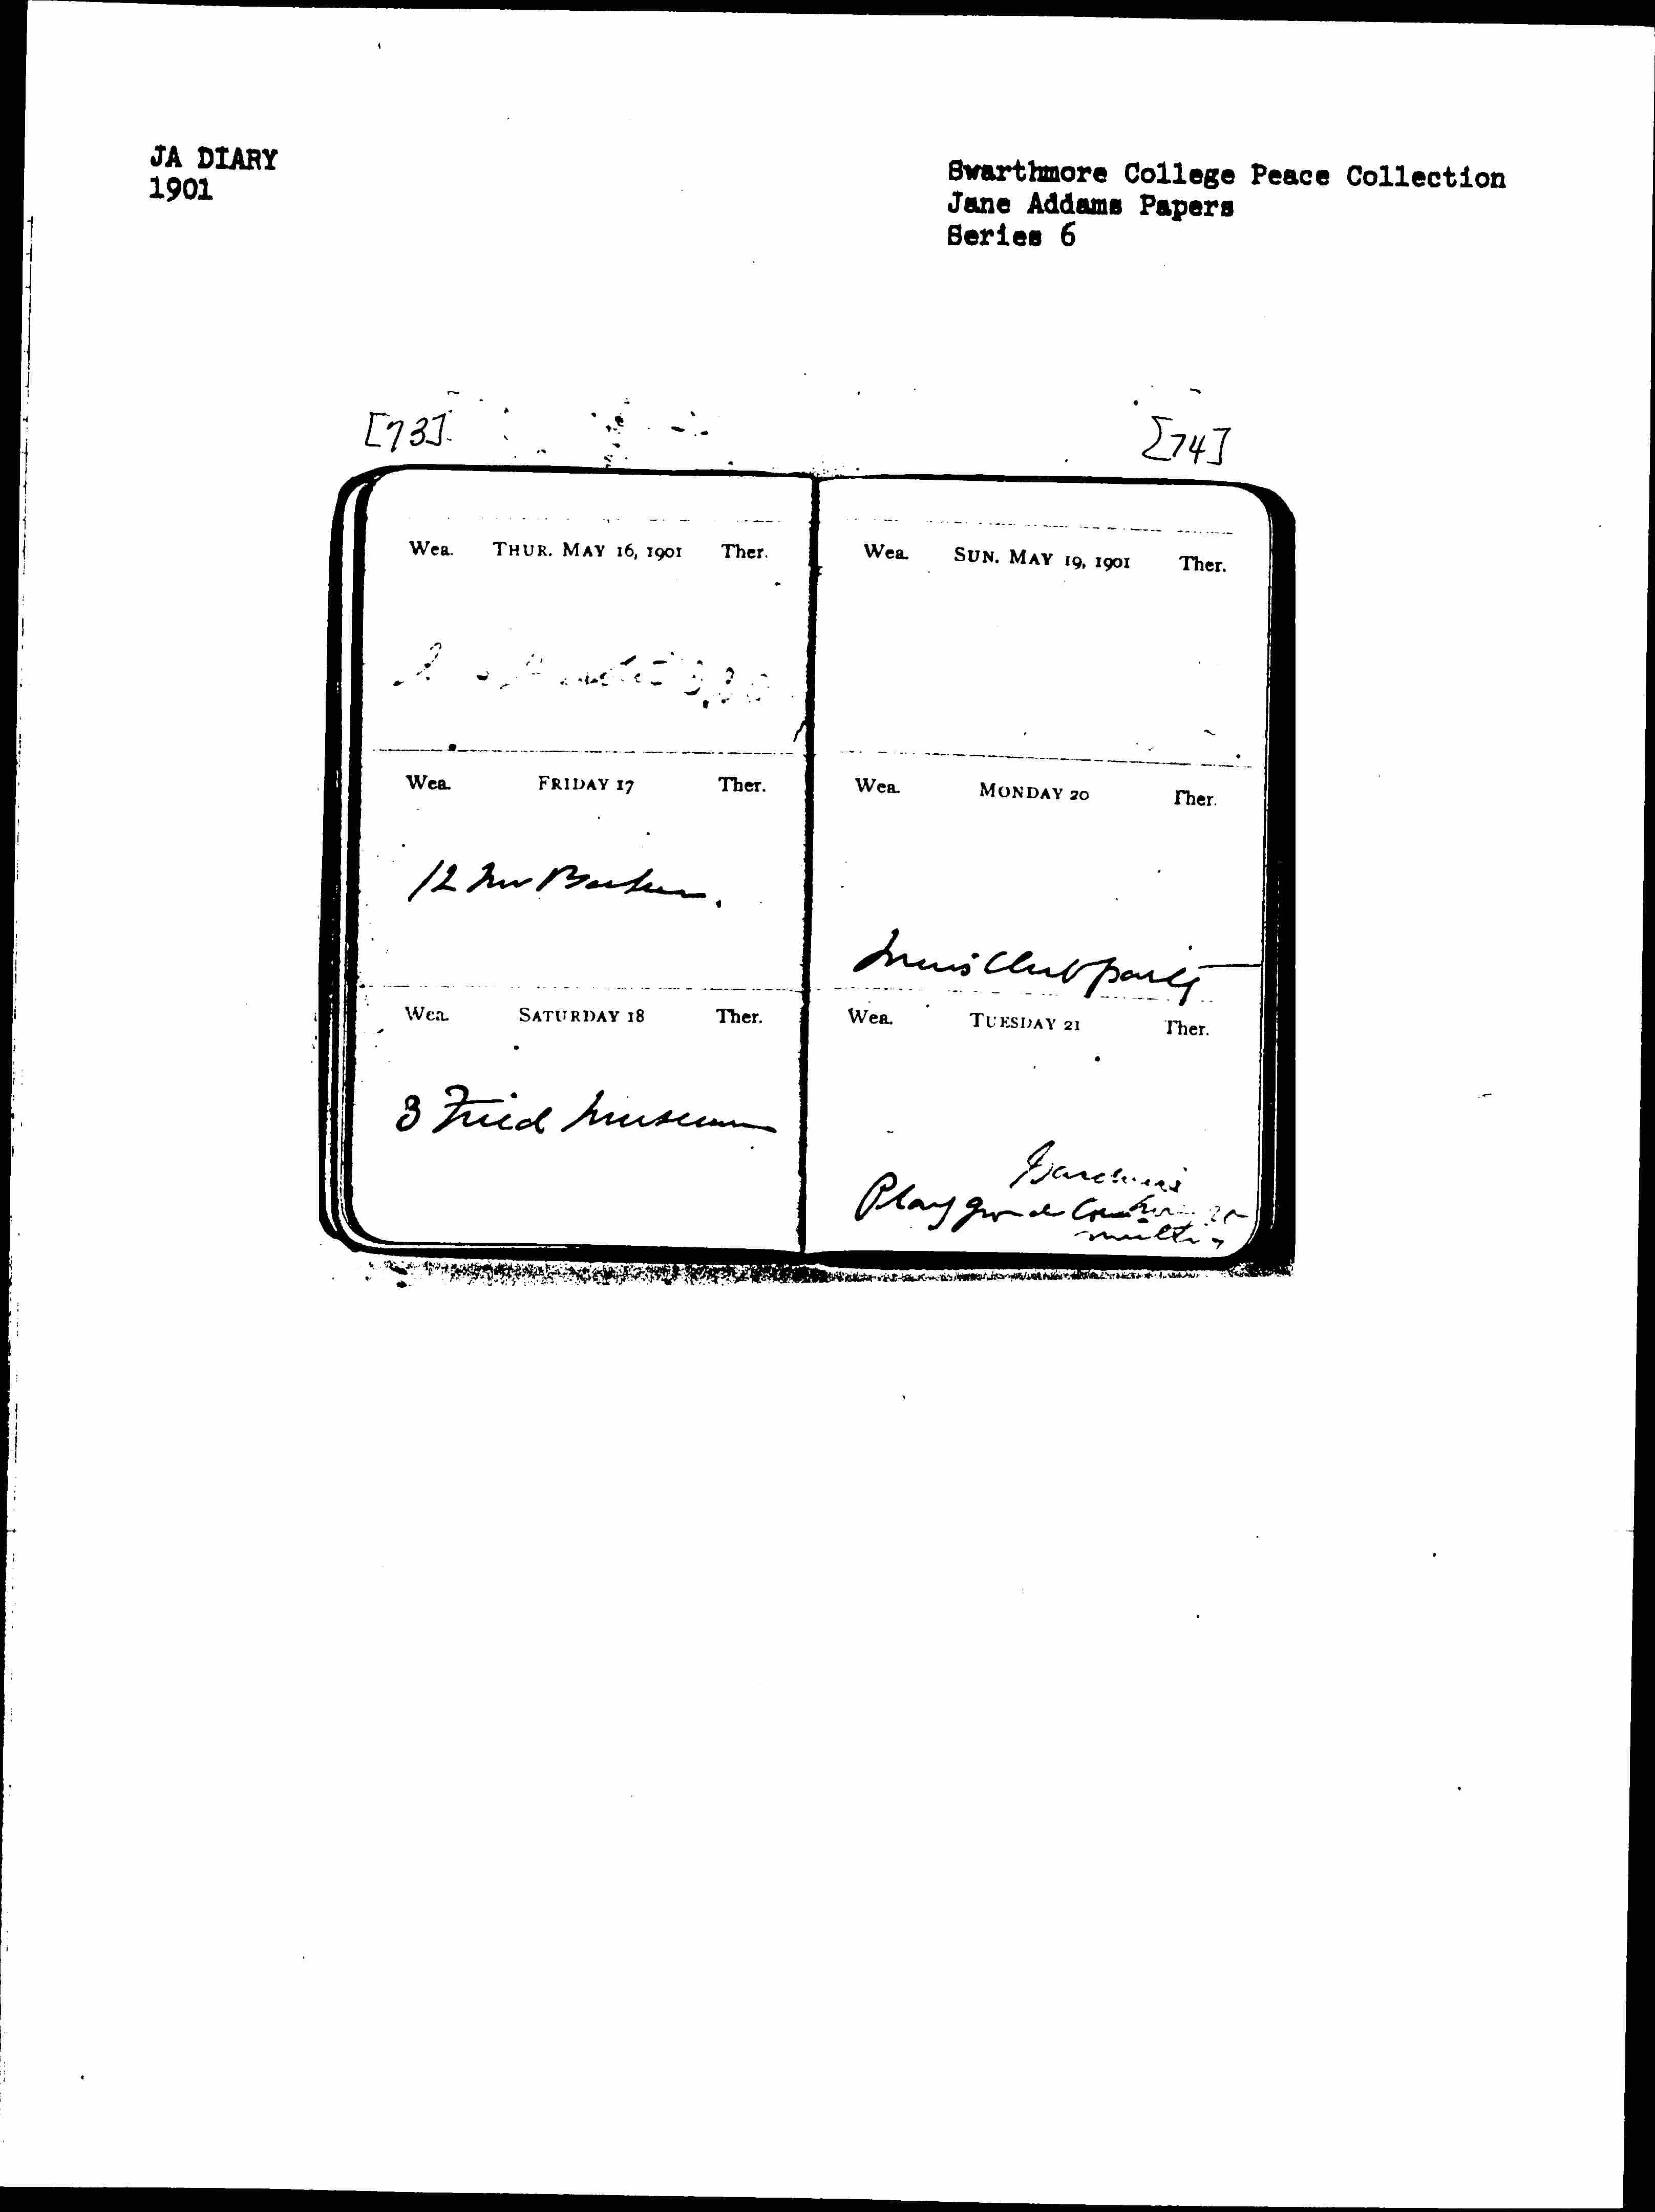 JA DIARY
1901
Swarthmore College Peace Collection
Jane Addams Papers
Series 6
[73]
[74]
Wea. THUR. MAY 16, 1901 Ther.
3.30
Wea. FRIDAY 17 Ther.
12
Wea. SATURDAY 18 Ther.
3 Field Museum
Wea. SUN. MAY 19, 1901 Ther.
Wea. MONDAY 20 Ther.
Men's Club party
Wea. TUESDAY 21 Ther.
Play ground